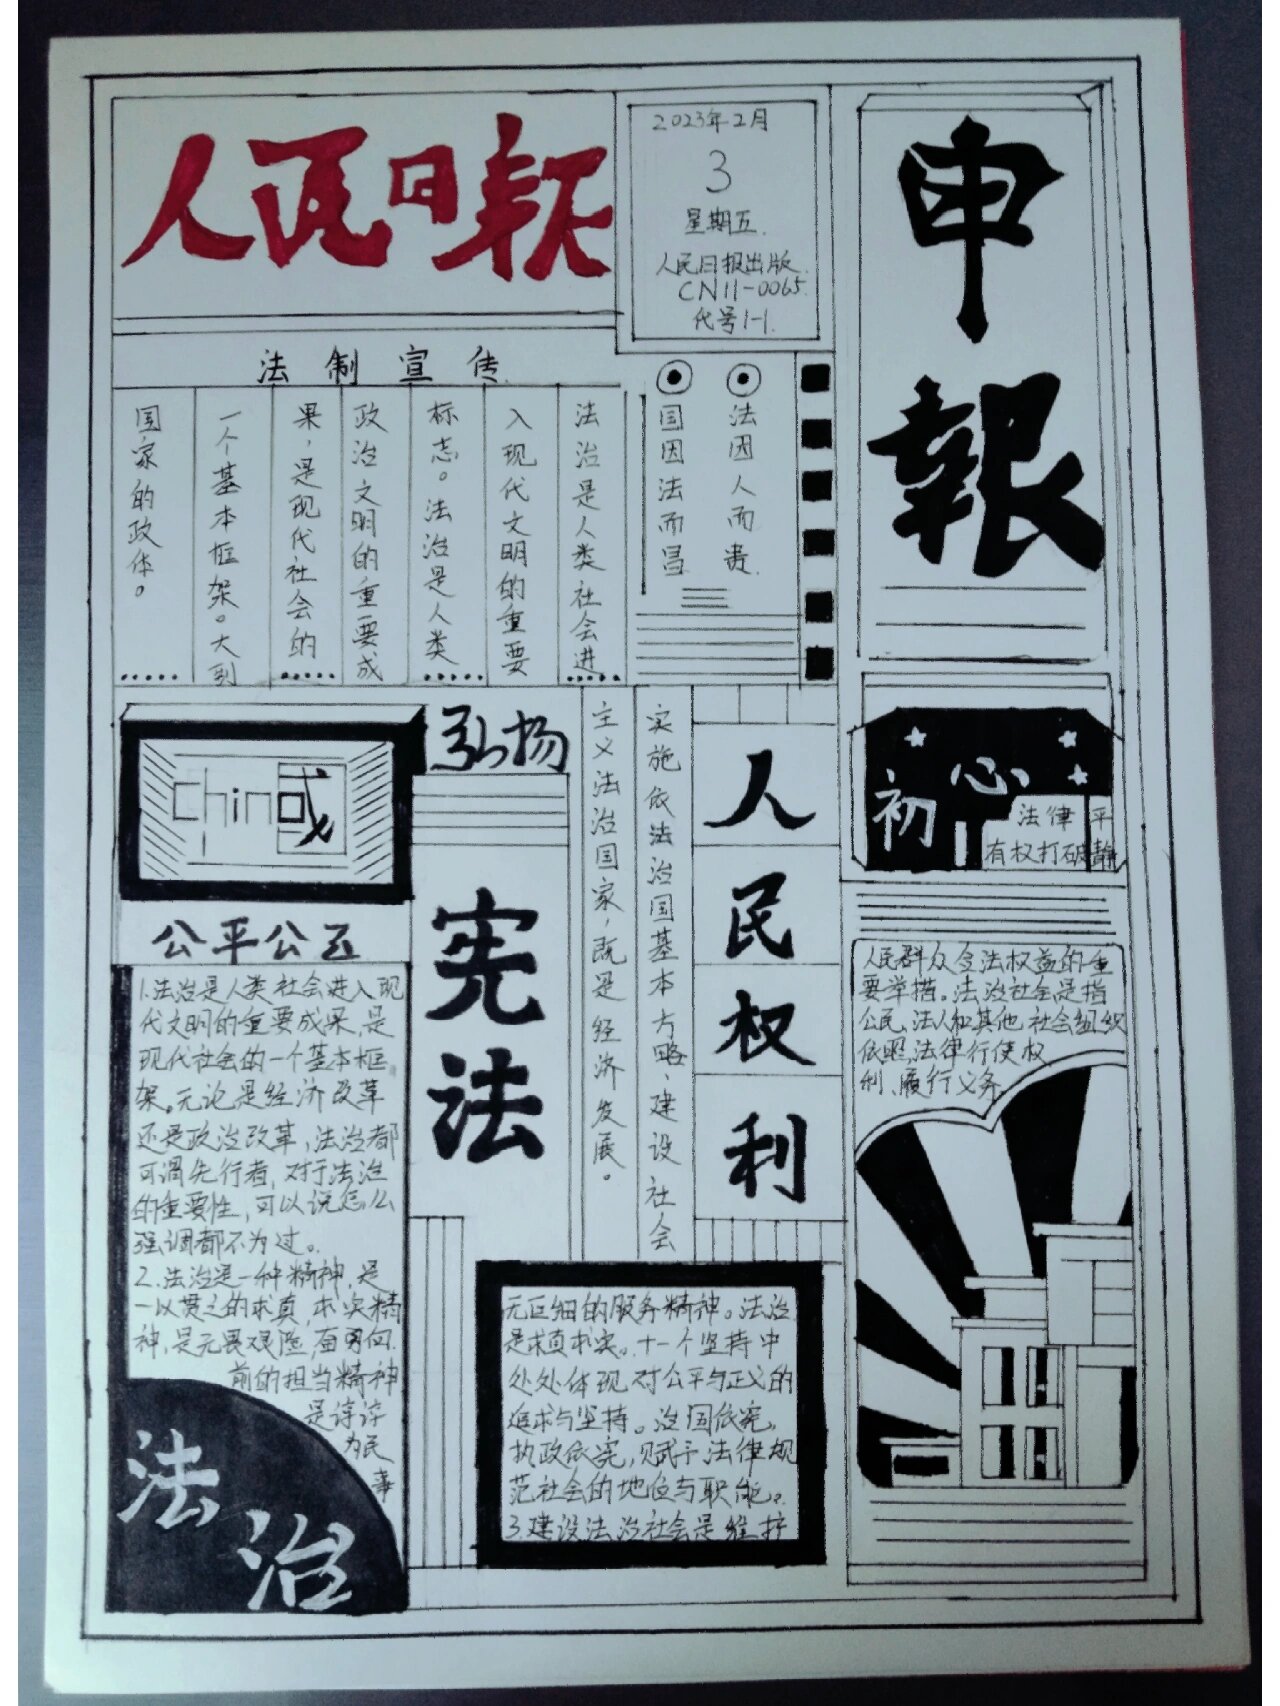 人民日報
2023年2月
3
星期五
人民日报出版
CN11-0065
代号1-1
申
報
法制宣传
法治是人类社会进
入现代文明的重要
标志。法治是人类
政治文明的重要成
果,是现代社会的
一个基本框架。大到
国家的政体。
法因人而贵
国因法而昌
chin國
弘扬
宪法
实施依法治国基本方略、建设社会
主义法治国家,既是经济发展。
人民权利
初心
法律平
有权打破静
公平公正
1.法治是人类社会进入现
代文明的重要成果,是
现代社会的一个基本框
架。无论是经济改革
还是政治改革,法治都
可谓先行者,对于法治
的重要性,可以说怎么
强调都不为过。
2.法治是一种精神,是
一以贯之的求真,求实精
神,是无畏艰险,面勇向
前的担当精神
是谆谆
为民
事
法治
无巨细的服务精神。法治
是求真求实。十一个坚持中
处处体现对公平与正义的
追求与坚持。治国依宪,
执政依宪,赋予法律规
范社会的地位与职能。
3.建设法治社会是维护
人民群众合法权益的重
要举措。法治社会是指
公民、法人和其他社会组织
依照法律行使权
利、履行义务